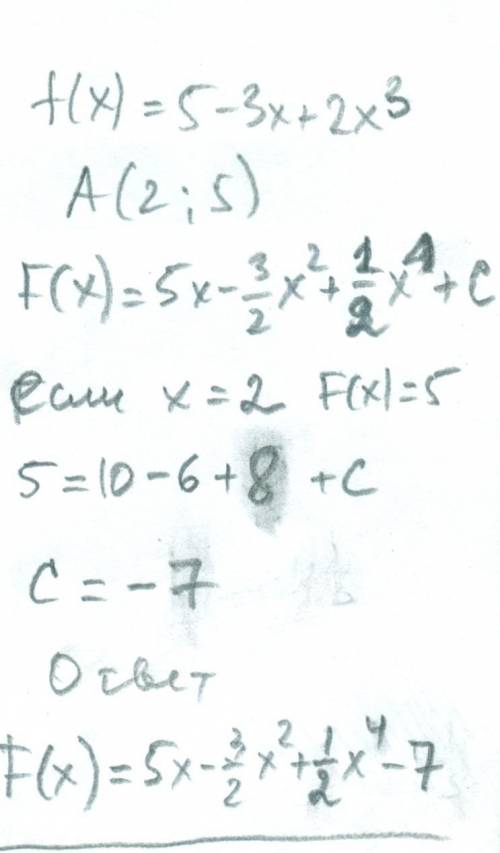 f(x) = 5 - 3x + 2x³
A(2; 5)
F(x) = 5x - 3/2 x² + 1/2 x⁴ + C
если x = 2 F(x) = 5
5 = 10 - 6 + 8 + C
C = - 7
Ответ
F(x) = 5x - 3/2 x² + 1/2 x⁴ - 7